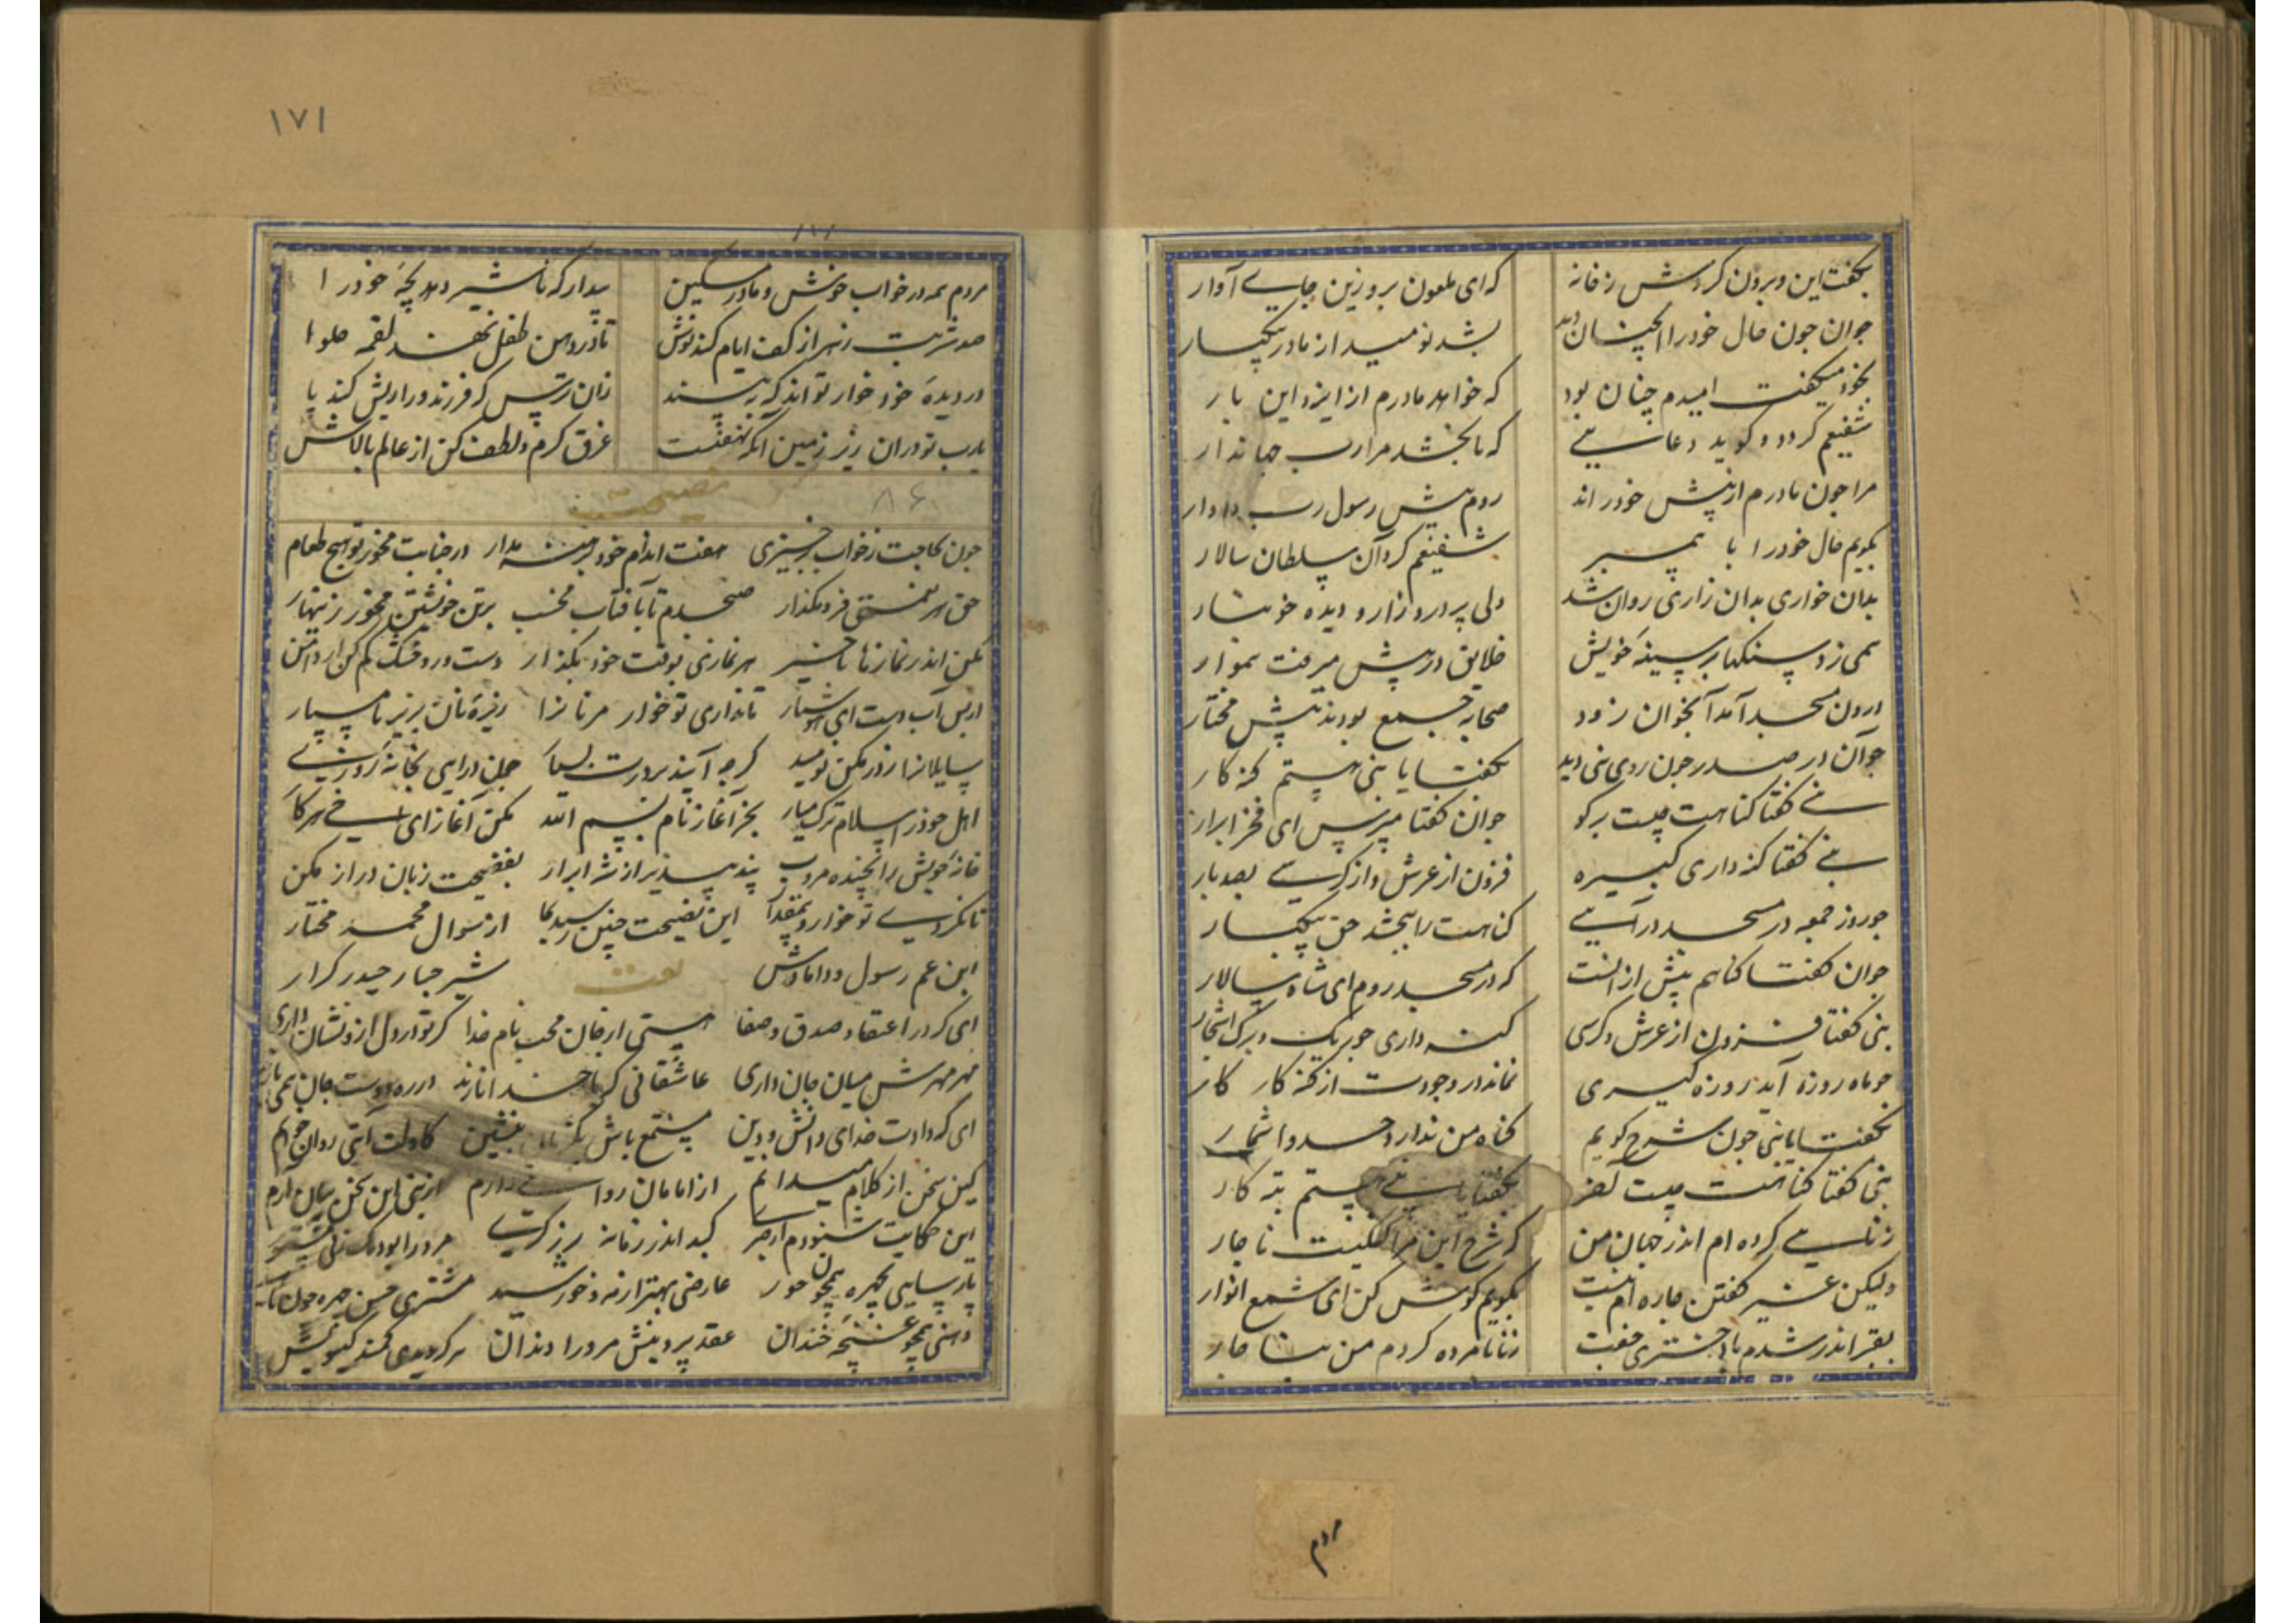 بکفت این و برون کردش ز خانه که ای ملعون برو زین جایے آوار
جوان چون حال خود را انچنان دید بشد نومید از مادر بیکبار
بخود میکفت امیدم چنان بود که خواهد مادرم از ایزد این بار
شفیعم کردد و کوید دعایے که تا بخشد مرا رب جهاندار
مرا چون مادرم از پیش خود راند روم پیش رسول رب دادار
بکویم حال خود را با پیمبر شفیعم کرد آن سلطان سالار
بدان خواری بدان زاری روان شد دلی پر درد و زار و دیده خونبار
همی زد سنکها بر سینه خویش خلایق در پیش میرفت هموار
درون مسجد آمد آنجوان زود صحابه جمع بودند پیش مختار
جوان در صدر چون روی نبی دید بکفتا یا نبی هستم کنه کار
نبی کفتا کناهت چیست برکو جوان کفتا مپرس ای فخر ابرار
نبی کفتا کنه داری کبیره فزون از عرش و از کرسے بصد بار
چو روز جمعه در مسجد درآیے کناهت را ببخشد حق بیکبار
جوان کفتا کناهم بیش از انست که در مسجد روم ای شاه سالار
نبی کفتا فزون از عرش و کرسی کنه داری چو ریک و برک اشجار
چو ماه روزه آید روزه کیری نماند در وجودت از کنه کار
بکفتا یا نبی چون شرح کویم کناه من ندارد حد و اشمار
نبی کفتا کناهت چیست آخر بکفتا یا نبی هستم تبه کار
زنایے کرده ام اندر جهان من که شرح این مرا کفتیست ناچار
ولیکن غیر کفتن چاره ام نیست بکویم کوش کن ای شمع انوار
بقبر اندر شدم با دختری خفت زنا با مرده کردم من بناچار
مردم
۱۷۱
مردم همه در خواب خوش و مادر مسکین بیدار که تا شیر دهد بچه خود را
صد شربت زهر از کف ایام کند نوش تا در دهن طفل نهد لقمه حلوا
در دیده خود خار تواند که ببیند زان ترس که فرزند ورا ریش کند پا
یارب تو در ان زیر زمین آنکه نهفتست غرق کرم و لطف کن از عالم بالاش
نصیحت ۸۶
چون بحاجت ز خواب برخیزی هفت اندام خود برهنه مدار در جنابت مخور تو هیچ طعام
حق هر نعمتی فرو مکذار صبحدم تا بآفتاب مخسب برتن خویشتن مخور زینهار
مکن اندر نمازها تاخیر هر نمازی بوقت خود بکذار
تا نداری تو خوار مر نانرا ریزه نان بزیر پا مسپار
سایلانرا ز در مکن نومید کرچه آیند بر درت بسیار
بجز آغاز نام بسم الله مکن آغاز ای اخے هر کار
خانه خویش را بخنده مروب پند بپذیر از شه ابرار بفضیحت زبان دراز مکن
تا نکردی تو خوار و بیمقدار این نصیحت چنین رسید بما از رسول محمد مختار
ابن عم رسول و دامادش شیر جبار حیدر کرار
نعت
ای که در اعتقاد و صدق و صفا هستی از جان محب نام خدا کر تو در دل ازو نشان داری
مهر مهرش میان جان داری عاشقانی که با خدا نازند در ره دوست جان همی بازند
ای که دادت خدای دانش و دین مستمع باش یکزمان بنشین کاولت آیتی روان خوانم
کین سخن از کلام میدانم از امامان روایتے دارم از نبی این سخن بیان آرم
این حکایت شنودم از خبر
پارسایی بچهره همچون حور عارضی بهتر از مه و خورشید
دهنی همچو غنچه خندان عقد پروینش مر ورا دندان